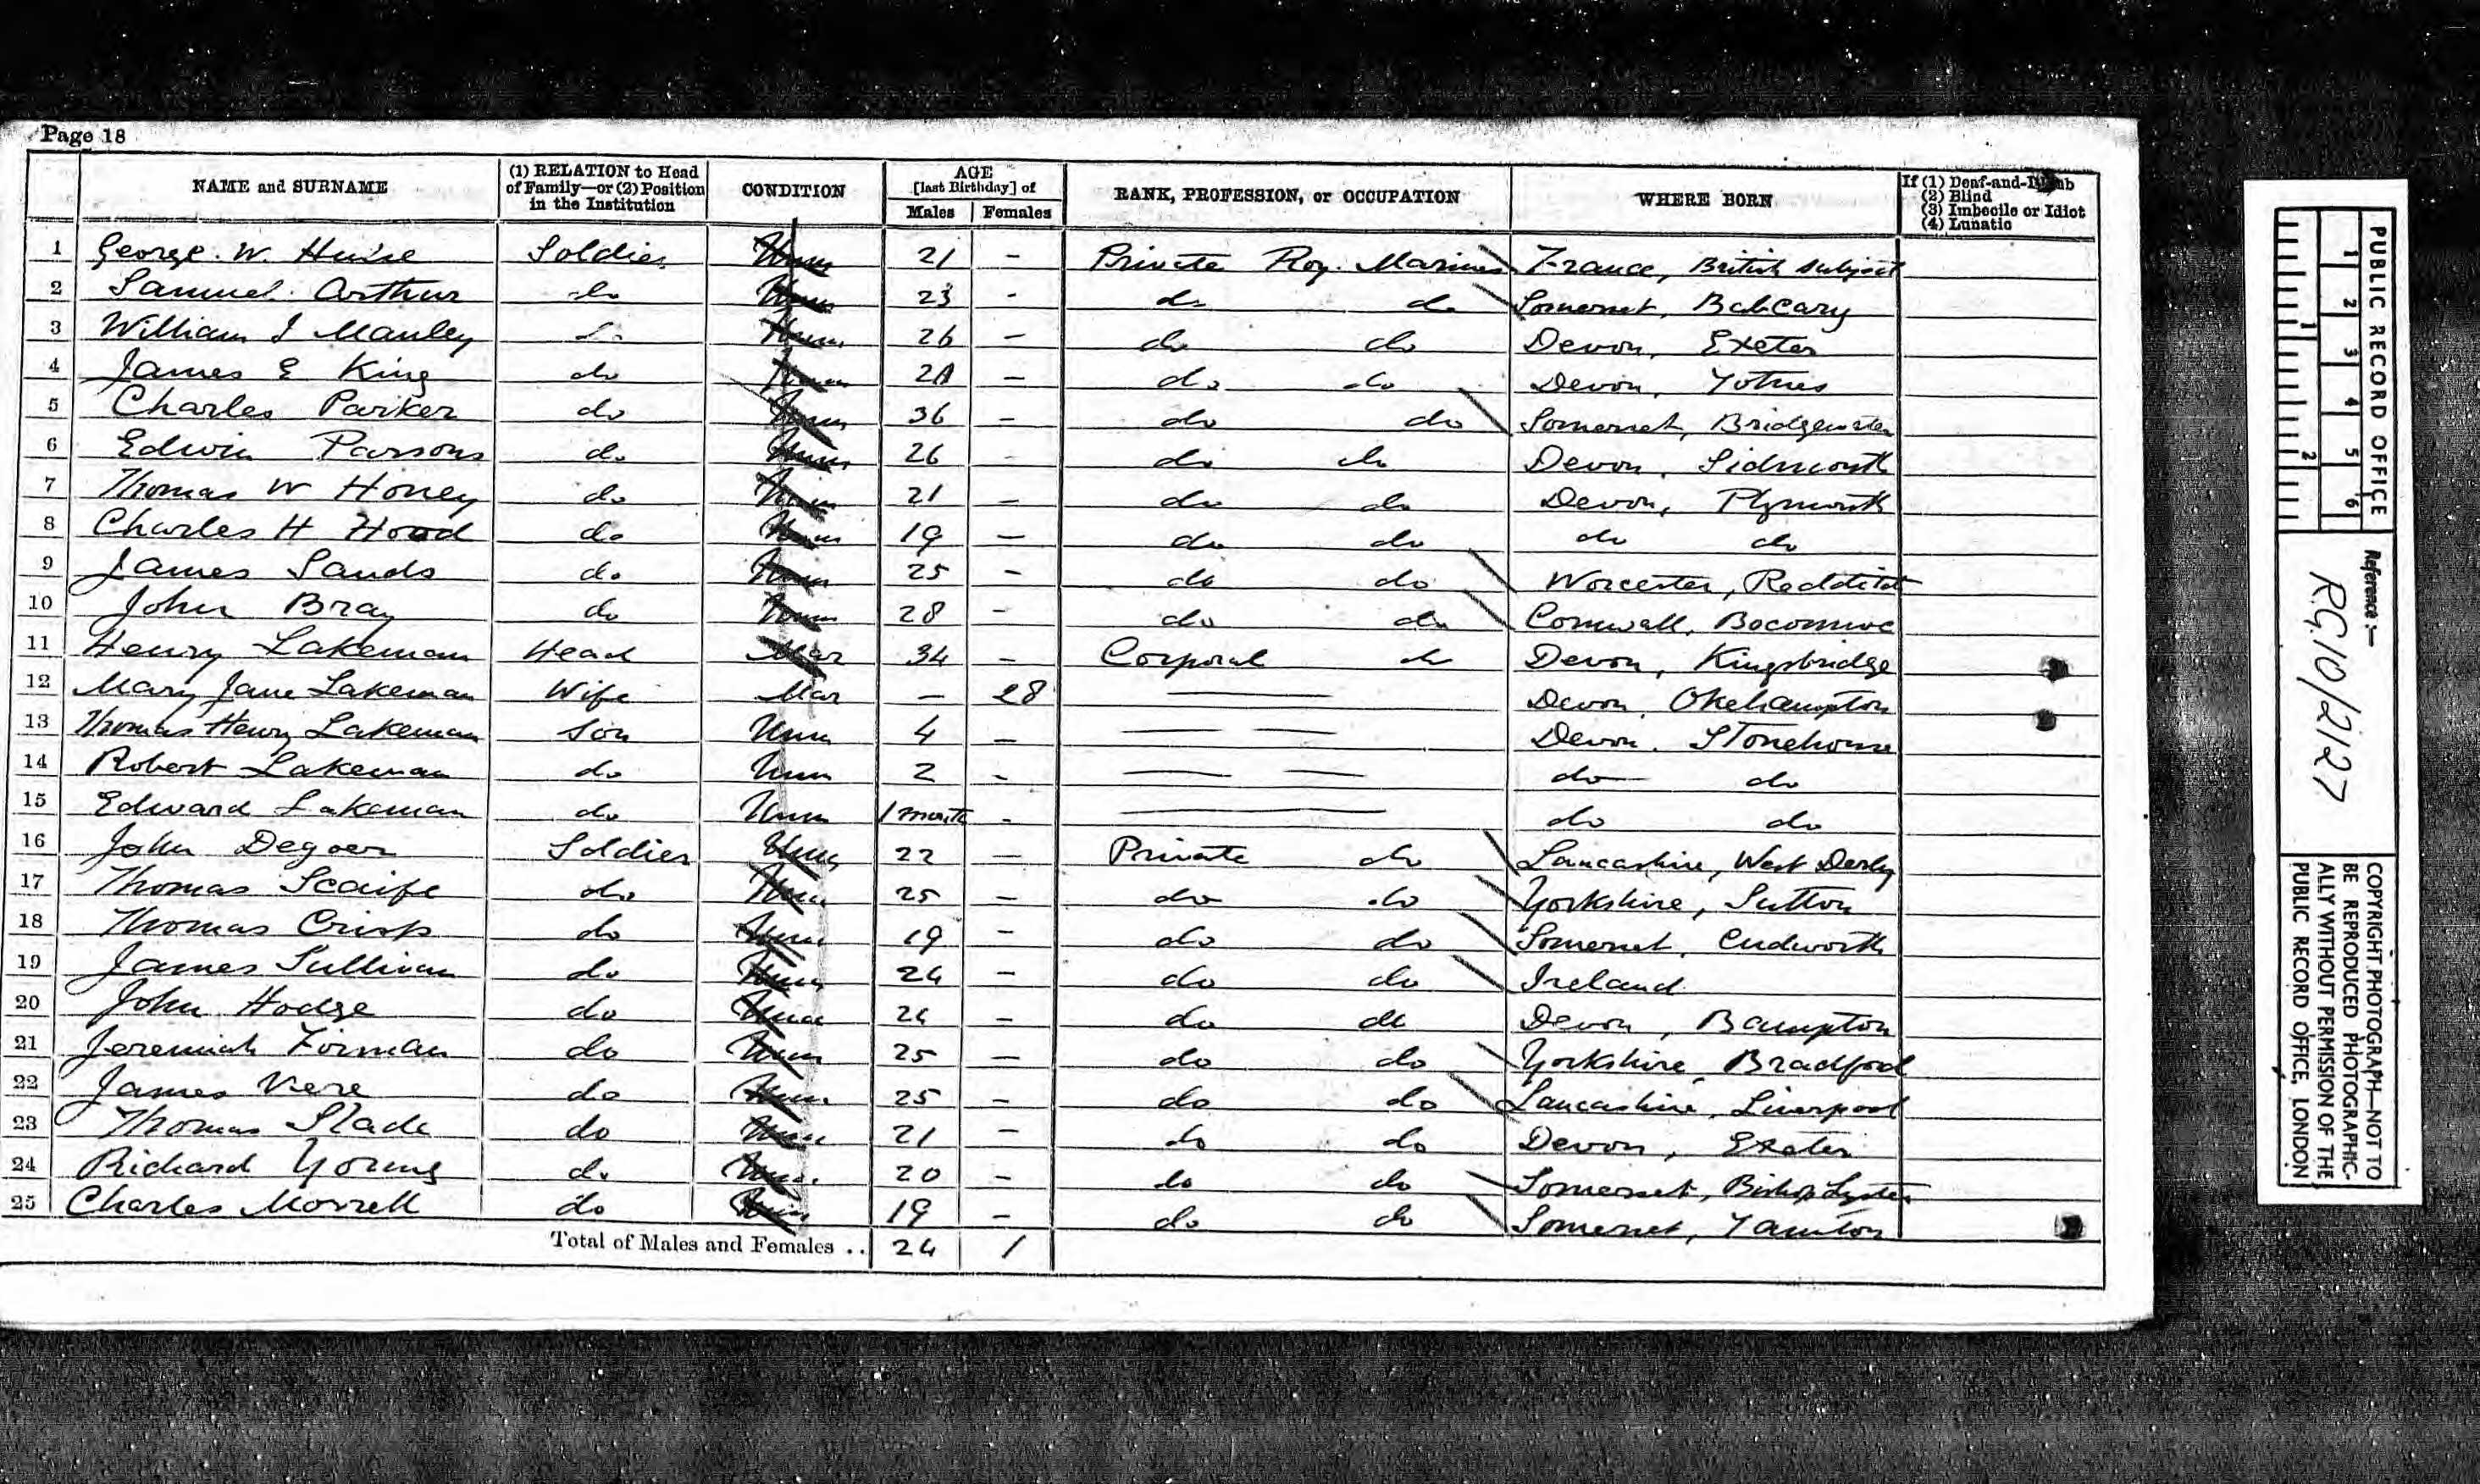 Page 18
NAME and SURNAME (1) RELATION to Head of Family—or (2) Position in the Institution CONDITION AGE [last Birthday] of Males Females RANK, PROFESSION, or OCCUPATION WHERE BORN If (1) Deaf-and-Dumb (2) Blind (3) Imbecile or Idiot (4) Lunatic
1 George. W. Soldier Unm 21 - Private Roy. Marines France, British Subject
2 Samuel Arthur do Unm 23 - do do Somerset, Babcary
3 William J Manley do Unm 26 - do do Devon, Exeter
4 James E King do Unm - do do Devon, Totnes
5 Charles Parker do Unm 36 - do do Somerset, Bridgewater
6 Edwin Parsons do Unm 26 - do do Devon, Sidmouth
7 Thomas W Honey do Unm 21 - do do Devon, Plymouth
8 Charles H Hood do Unm 19 - do do do do
9 James Sands do Unm 25 - do do Worcester, Redditch
10 John Bray do Unm 28 - do do Cornwall,
11 Henry Lakeman Head Mar 34 - Corporal do Devon, Kingsbridge
12 Mary Jane Lakeman Wife Mar - 28 Devon, Okehampton
13 Thomas Henry Lakeman Son Unm 4 - Devon. Stonehouse
14 Robert Lakeman do Unm 2 - do do
15 Edward Lakeman do Unm 1 month - do do
16 John Soldier Unm 22 - Private do Lancashire, West Derby
17 Thomas Scaife do Unm 25 - do do Yorkshire, Sutton
18 Thomas Crisp do Unm 19 - do do Somerset, Cudworth
19 James Sullivan do Unm 24 - do do Ireland
20 John Hodge do Unm 24 - do do Devon, Bampton
21 Jeremiah Firman do Unm 25 - do do Yorkshire, Bradford
22 James Vere do Unm 25 - do do Lancashire, Liverpool
23 Thomas Slade do Unm 21 - do do Devon, Exeter
24 Richard Young do Unm 20 - do do Somerset, Bishop
25 Charles Morrell do Unm 19 - do do Somerset, Taunton
Total of Males and Females .. 24 1
PUBLIC RECORD OFFICE
1 2 3 4 5 6
1 2
Reference :—
RG.10/2127
COPYRIGHT PHOTOGRAPH—NOT TO
BE REPRODUCED PHOTOGRAPHIC-
ALLY WITHOUT PERMISSION OF THE
PUBLIC RECORD OFFICE, LONDON